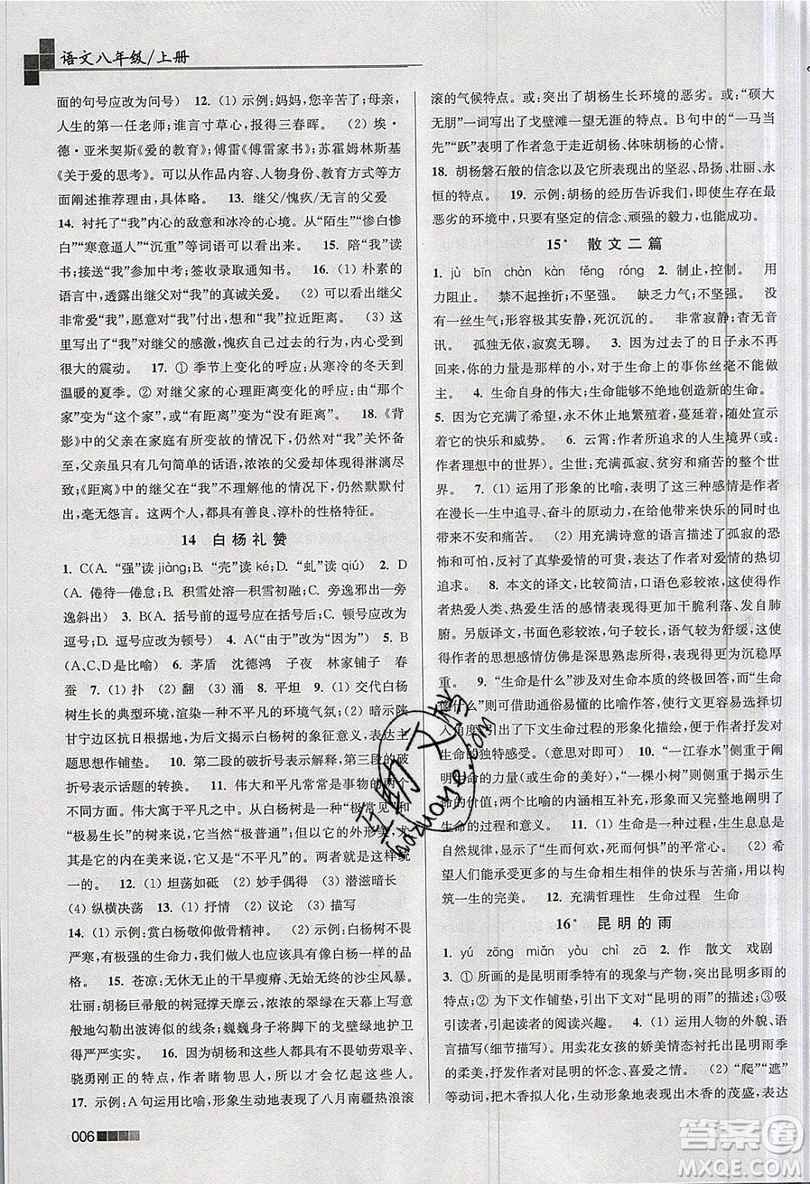 语文八年级/上册
面的句号应改为问号) 12. (1) 示例:妈妈,您辛苦了;母亲,
人生的第一任老师;谁言寸草心,报得三春晖。 (2) 埃·
德·亚米契斯《爱的教育》;傅雷《傅雷家书》;苏霍姆林斯基
《关于爱的思考》。可以从内容、人物身份、教育方式等方面
阐述推荐理由,具体略。 13. 继父/愧疚/无言的父爱
14. 衬托了“我”内心的敌意和冰冷的心境。从“陌生”“惨白惨
白”“寒意逼人”“沉重”等词语可以看出来。 15. 陪“我”读
书;接送“我”参加中考;签收录取通知书。 16. (1) 朴素的
语言中,透露出继父对“我”的真诚关爱。 (2) 可以看出继父
非常爱“我”,愿意对“我”付出,和“我”拉近距离。 (3) 这里
描写出了“我”对继父的感激,愧疚自己过去的行为,内心有
很大的震动。 17. ① 季节上变化的呼应;从寒冷的冬天到
温暖的夏季。② 对继父家的心理距离变化的呼应;由“那个
家”变为“这个家”,或“有距离”变为“没有距离”。 18. 《背
影》中父亲在家庭有所变故的情况下,仍然对“我”关怀备
至,虽然只有几句简单的话语,浓浓的父爱却从一举一动中
流露;《距离》中的继父在“我”不理解他的情况下,仍然默默付
出,毫无怨言。这两个父亲,都具有善良、淳朴的性格特征。
14 白杨礼赞
1. C(A. “强”读 jiàng;B. “壳”读 ké;D. “虬”读 qiú) 2. D
(A. 倦待—倦怠;B. 积雪处溶—积雪初融;C. 旁逸邪出—旁
逸斜出) 3. B(A. 括号前的逗号应去掉;C. 顿号应改为
逗号;D. 逗号应改为顿号) 4. A(“由于”改为“因为”) 5. B
(A、C、D是比喻) 6. 茅盾 沈德鸿 子夜 林家铺子 春
蚕 7. (1) 扑 (2) 翻 8. 平坦 9. (1) 交代白杨
树生长的典型环境,渲染一种不平凡的环境气氛;(2) 暗示陕
甘宁边区抗日根据地,为下文揭示白杨树的象征意义、表达主
题思想作铺垫。 10. 第二段的破折号表示解释,第四段的破折
号表示话题的转换。 11. 伟大和平凡常常是事物的两个
不同方面。伟大寓于平凡之中。从白杨树这一“极常见”和
“极易生长”的树来说,它当然“极普通”;但从它的外形和它的
内在美来说,它又当然“不平凡”。两者就是这样有机统一的,
并不矛盾。 12. (1) 坦荡如砥 (2) 妙手偶得 (3) 潜滋暗长
(4) 纵横决荡 13. (1) 抒情 (2) 议论 (3) 描写
14. (1) 示例:赏白杨敬仰傲骨精神。 (2) 示例:白杨树不畏
风雪的侵蚀,所以伟岸,我们做人也应该具有像白杨一样的不
屈精神。 15. 苍凉:无休无止的干旱瘦瘠、无边无际的沙尘风暴。
壮丽:胡杨巨幕般的树冠撑天摩云,浓浓的翠绿在天幕上写意
般地勾勒出波涛似的线条;巍巍身会将脚下的戈壁守卫护卫
得严严实实。 16. 因为胡杨与老一辈农垦人都具有勤劳坚韧、
骁勇刚正的特点,作者睹物思人,所以会忍不住怀念起他们。
17. 示例:A句运用了比喻,形象生动地写出了八月南疆热浪滚
滚的气候特点。或:突出了胡杨生长环境的恶劣。或:“硕大
无朋”一词写出了戈壁滩一望无涯的特点。B句中的“一马当
先”“跃”表现了作者急于走近胡杨、体味胡杨的心情。
18. 胡杨磐石般的信念以及它所表现出的坚忍、昂扬、壮丽、永
恒的特点。 19. 示例:胡杨的经历告诉我们,即使是在最
恶劣的环境中,只要有坚定的信念、顽强的毅力,也能成功。
15* 散文二篇
1. jù bīn chàn kàn fěng róng 2. 制止,控制。 用
力阻止。 禁不起挫折;不坚强。 缺乏力气;不坚强。 没
有一丝生气;形容极其安静,死沉沉的。 非常寂静,没有声
音。 孤独无伴,寂寞无聊。 3. 因为过去了的日子永不再
回来,你所做的一切,对于广大世上的事体丝毫不能
有所改变。 4. 生命自身的伟大;生命能够不绝地创造新的生命。
5. 因为它充满了希望,永不休止地繁殖着,蔓延着,随处宣
示着它的快乐和威势。 6. 云霄:作者所追求的人生境界(或:
作者理想中的世界)。尘世:充满孤寂、贫穷和痛苦的悲惨世
界。 7. (1) 运用了形象的比喻,表现了这三种感情是情系作
者一生中追寻、奋斗的原动力,这些感情带来快乐的同时也
带来痛苦和磨难。 (2) 形象生动地描述了孤寂的可怕
情形,反衬了真挚爱情的可贵,表达了作者对爱情的热切
追求。 8. 本文的译文,比较简洁,口语色彩较浓,能体现
作者热爱人类、热爱生活的感情,表达的感情干脆利落、发自肺
腑。另版译文,书面色彩较浓,句子较长,语气较为舒缓,这就使
得作者的思想感情仿佛是深思熟虑所得,具有更为沉稳厚重的力量。
9. “生命是什么”是对设问的终极回答,在“我不敢
说生命是什么”后运用通俗易懂的比喻作答,使行文更容易选择切
入角度,引出了下文生命过程的形象化描绘,便于作者抒发对
生命的独特感受。(意思对即可) 10. “一江春水”表明了生
命的力量和运动,“一棵小树”则代表了生命的成长和壮大,
两个比喻在内涵上互相补充,形象全面、丰富深刻地阐明了
生命的过程和意义。 11. (1) 生命是一种过程,生生死死都是
自然规律,我们要有“生而何欢,死而何惧”的平常心。 (2)
希望人们勇敢地、平静地来接受生命的快乐与苦痛,这才能构
筑一生的完美。 12. 充满哲理性 生命过程 生命
16* 昆明的雨
1. yú zōng miǎn yòu chì zā 2. 作 散文 戏剧
3. ①所画的画是昆明雨季特有的现象与产物,突出昆明多雨的
特点;②为下文作铺垫,引出下文对“昆明的雨”的描述;③吸
引读者,引起读者的阅读兴趣。 4. (1) 运用人物的外貌、
语言描写(细节描写),写出卖花女孩的娇美情态与柔和性
格,表现了作者对昆明雨季的怀念、喜爱之情。 (2) “爬”“遮”
等词把木香拟人化,生动形象地表现出木香的茂盛,
006
答案圈
MXQE.COM